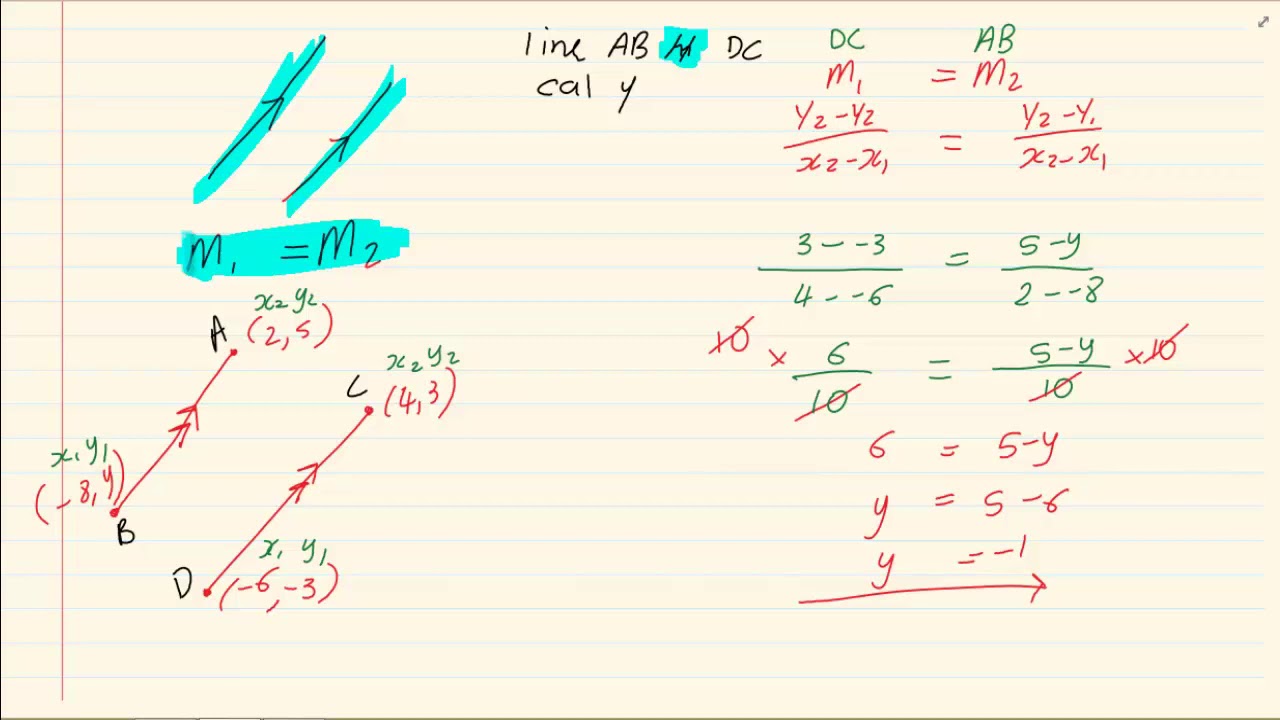 line AB // DC
cal y
m₁ = m₂
A
x₂ y₂
(2, 5)
x₂ y₂
C
(4, 3)
x₁ y₁
(-8, y)
B
x₁ y₁
D
(-6, -3)
DC AB
m₁ = m₂
y₂ - y₂ / x₂ - x₁ = y₂ - y₁ / x₂ - x₁
3 - -3 / 4 - -6 = 5 - y / 2 - -8
10 × 6 / 10 = 5 - y / 10 × 10
6 = 5 - y
y = 5 - 6
y = -1